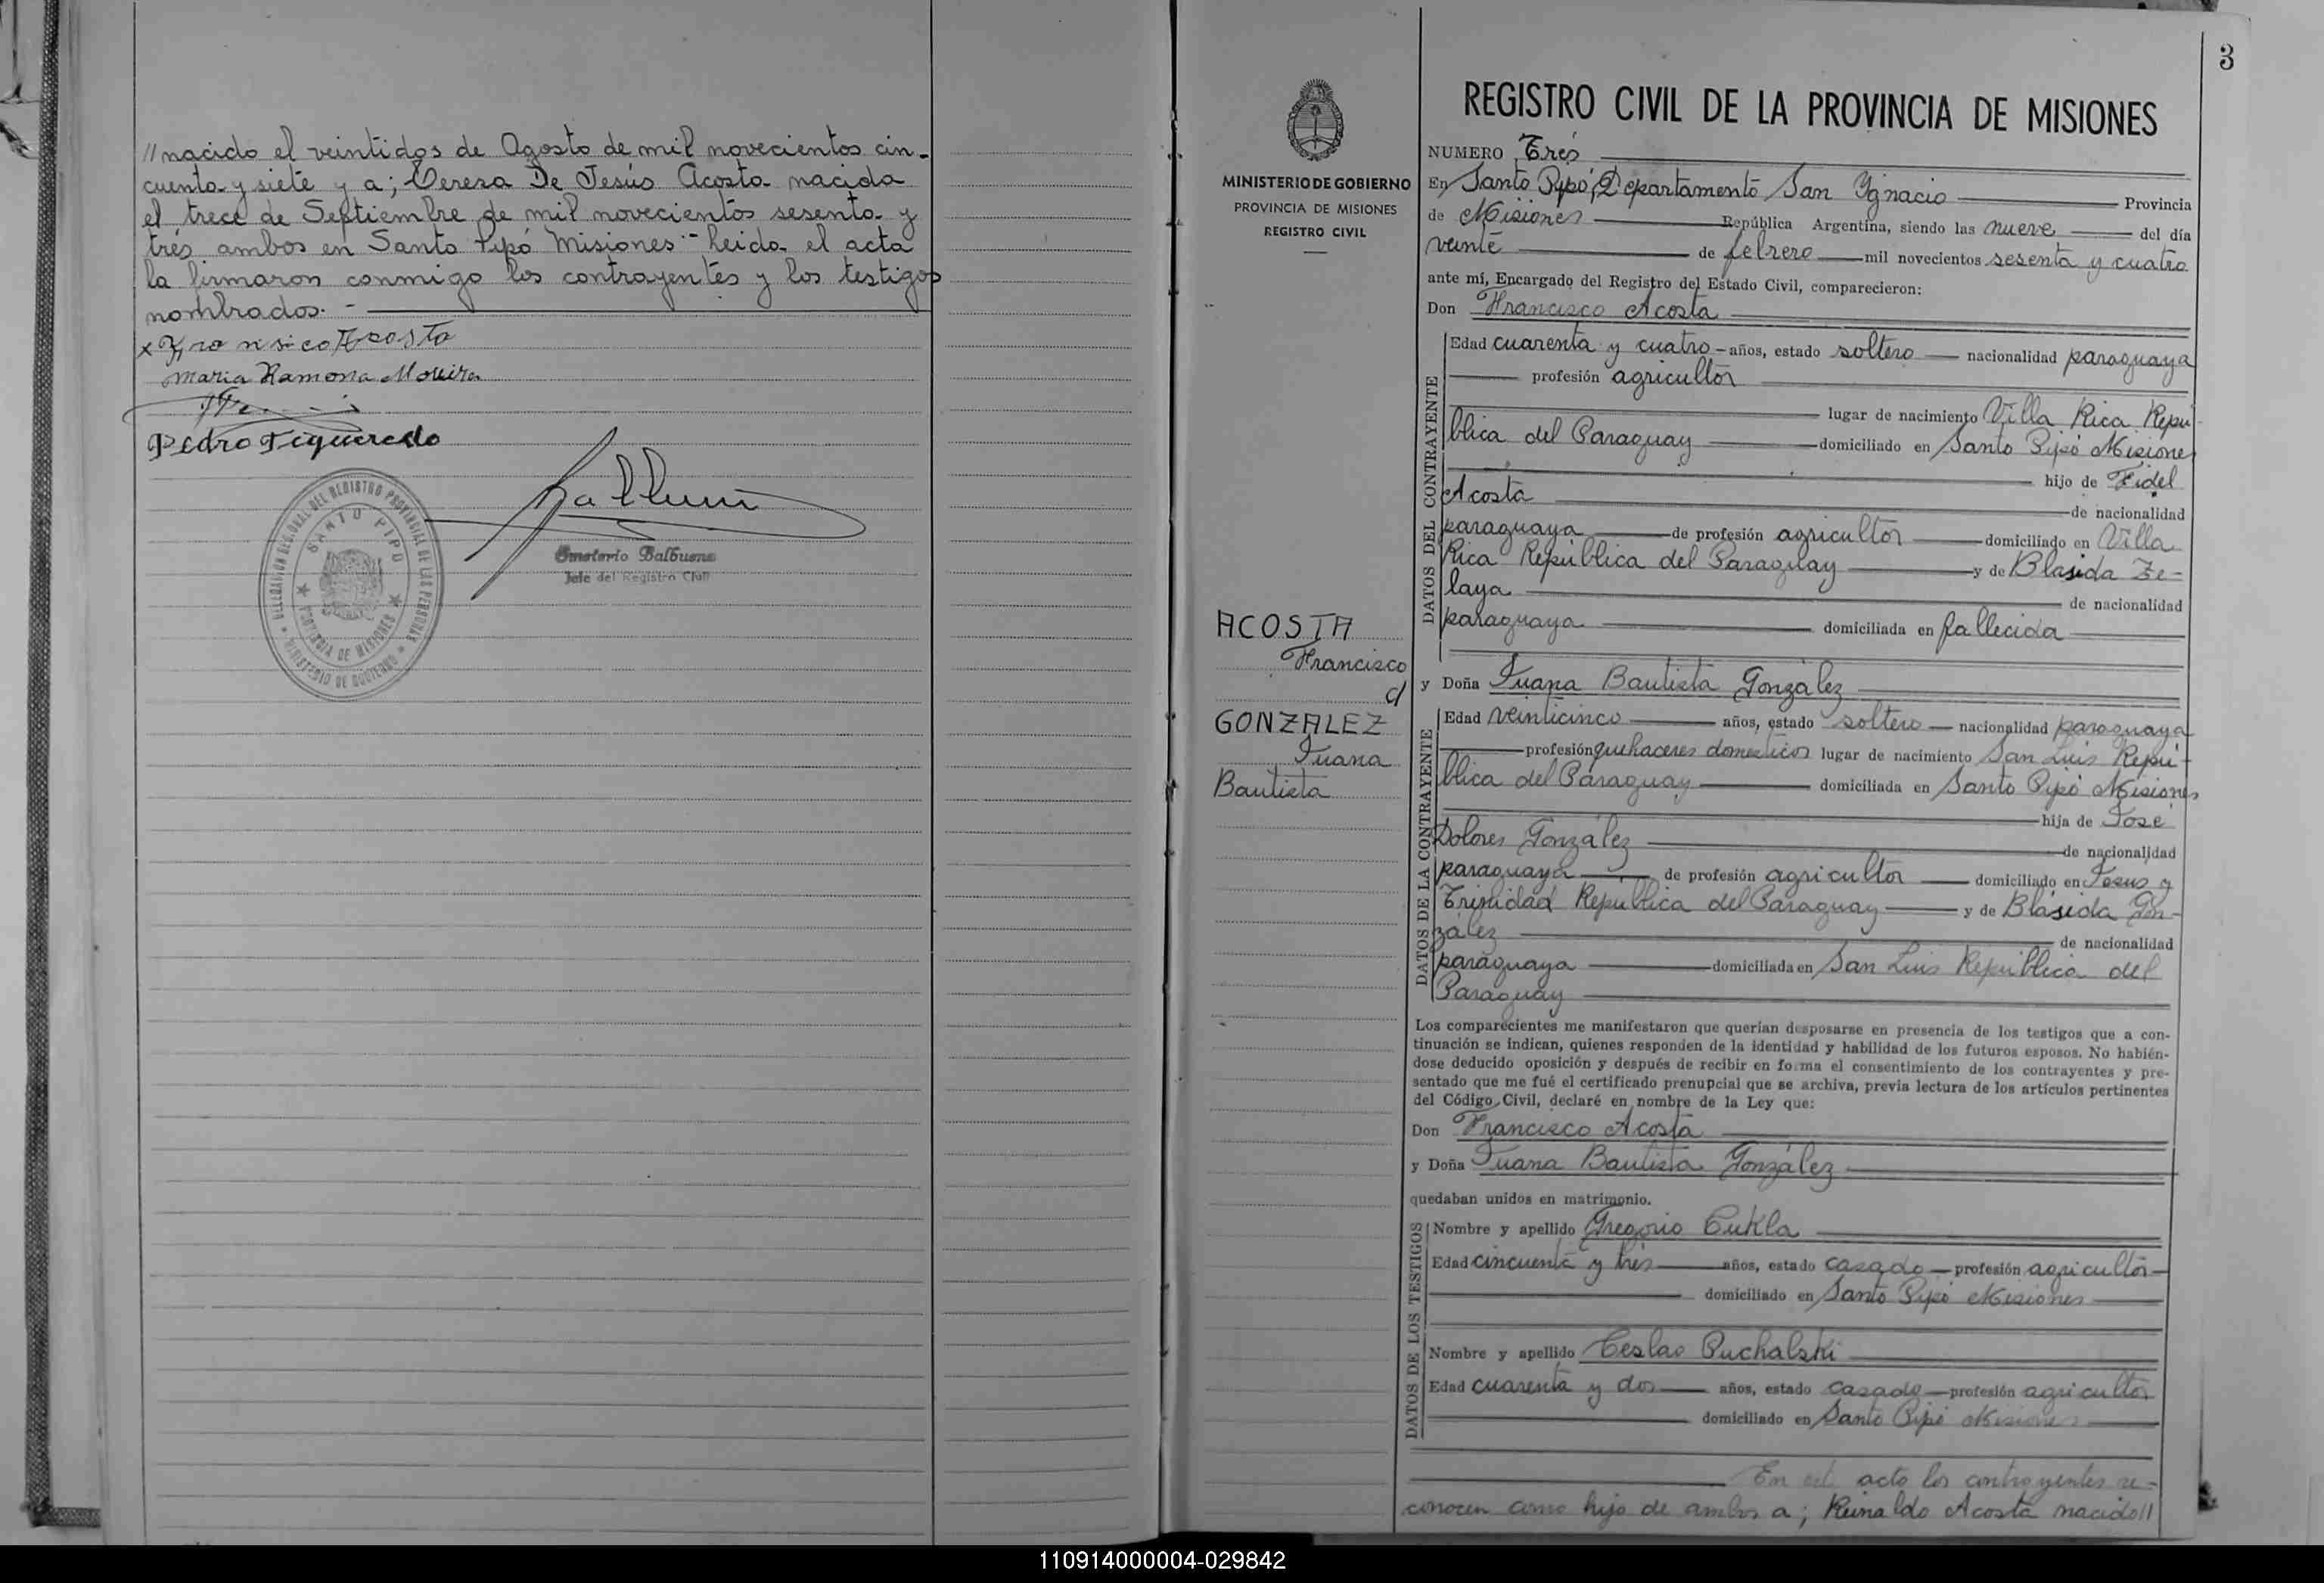 // nacido el veintidos de Agosto de mil novecientos cin-
cuenta y siete y a; Teresa De Jesús Acosta nacida
el trece de Septiembre de mil novecientos sesenta y
tres ambos en Santo Pipó Misiones.- Leida el acta
la firmaron conmigo los contrayentes y los testigos
nombrados. -
x Fransisco Acosta
Maria Ramona
Pedro Figueredo
DELEGACION REGIONAL DEL REGISTRO PROVINCIAL DE LAS PERSONAS
SANTO PIPO
PROVINCIA DE MISIONES
MINISTERIO DE GOBIERNO
Balbuena
Jefe del Registro Civil
3
MINISTERIO DE GOBIERNO
PROVINCIA DE MISIONES
REGISTRO CIVIL
ACOSTA
Francisco
c/
GONZALEZ
Juana
Bautista
REGISTRO CIVIL DE LA PROVINCIA DE MISIONES
NUMERO Tres
En Santo Pipó, Departamento San Ygnacio Provincia
de Misiones República Argentina, siendo las nueve del día
veinte de febrero mil novecientos sesenta y cuatro
ante mí, Encargado del Registro del Estado Civil, comparecieron:
Don Francisco Acosta
DATOS DEL CONTRAYENTE
Edad cuarenta y cuatro años, estado soltero nacionalidad paraguaya
profesión agricultor
lugar de nacimiento Villa Rica Repú-
blica del Paraguay domiciliado en Santo Pipó Misiones
hijo de Fidel
Acosta de nacionalidad
paraguaya de profesión agricultor domiciliado en Villa
Rica República del Paraguay y de Blasida Ze-
laya de nacionalidad
paraguaya domiciliada en fallecida
y Doña Juana Bautista González
DATOS DE LA CONTRAYENTE
Edad veinticinco años, estado soltero nacionalidad paraguaya
profesión quehaceres domesticos lugar de nacimiento San Luis Repú-
blica del Paraguay domiciliada en Santo Pipó Misiones
hija de José
Dolores González de nacionalidad
paraguaya de profesión agricultor domiciliado en Jesus y
Trinidad República del Paraguay y de Blásida Gon-
zález de nacionalidad
paraguaya domiciliada en San Luis República del
Paraguay
Los comparecientes me manifestaron que querían desposarse en presencia de los testigos que a con-
tinuación se indican, quienes responden de la identidad y habilidad de los futuros esposos. No habién-
dose deducido oposición y después de recibir en forma el consentimiento de los contrayentes y pre-
sentado que me fué el certificado prenupcial que se archiva, previa lectura de los artículos pertinentes
del Código Civil, declaré en nombre de la Ley que:
Don Francisco Acosta
y Doña Juana Bautista González
quedaban unidos en matrimonio.
DATOS DE LOS TESTIGOS
Nombre y apellido Gregorio Cukla
Edad cincuenta y tres años, estado casado profesión agricultor
domiciliado en Santo Pipó Misiones
Nombre y apellido Ceslao Puchalski
Edad cuarenta y dos años, estado casado profesión agricultor
domiciliado en Santo Pipó Misiones
En este acto los contrayentes re-
conocen como hijo de ambos a; Reinaldo Acosta nacido//
110914000004-029842